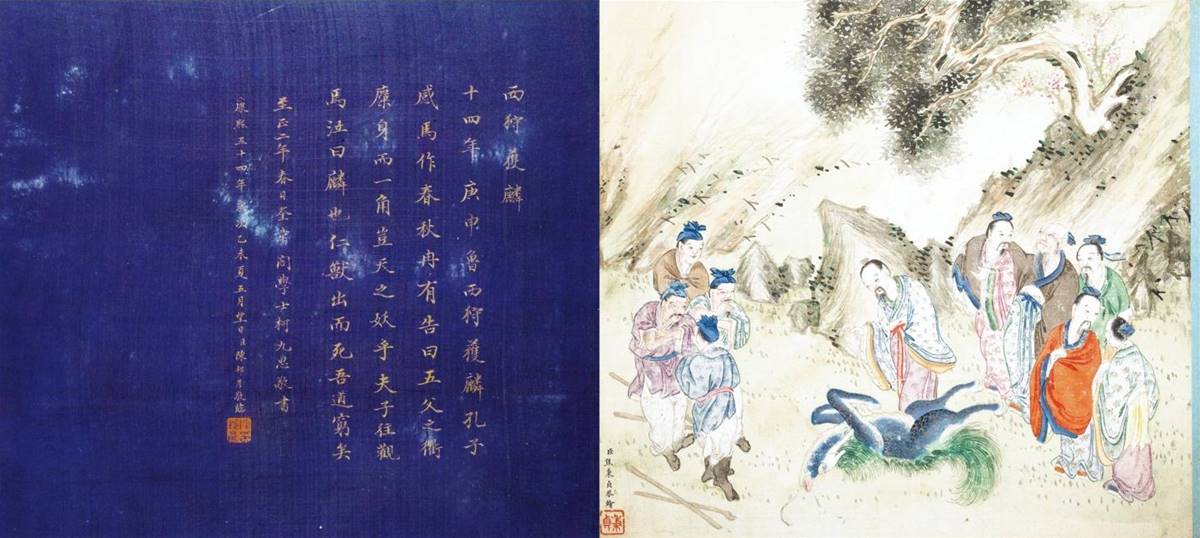 西狩獲麟
十四年庚申魯西狩獲麟孔子
感焉作春秋冉有告曰五父之衢
麋身而一角豈天之妖乎夫子往觀
焉泣曰麟也仁獸出而死吾道窮矣
至正二年春日奎章閣學士柯九思敬書
康熙五十四年歲次乙未夏五月望日臣陳邦彥敬臨
臣焦秉貞恭繪